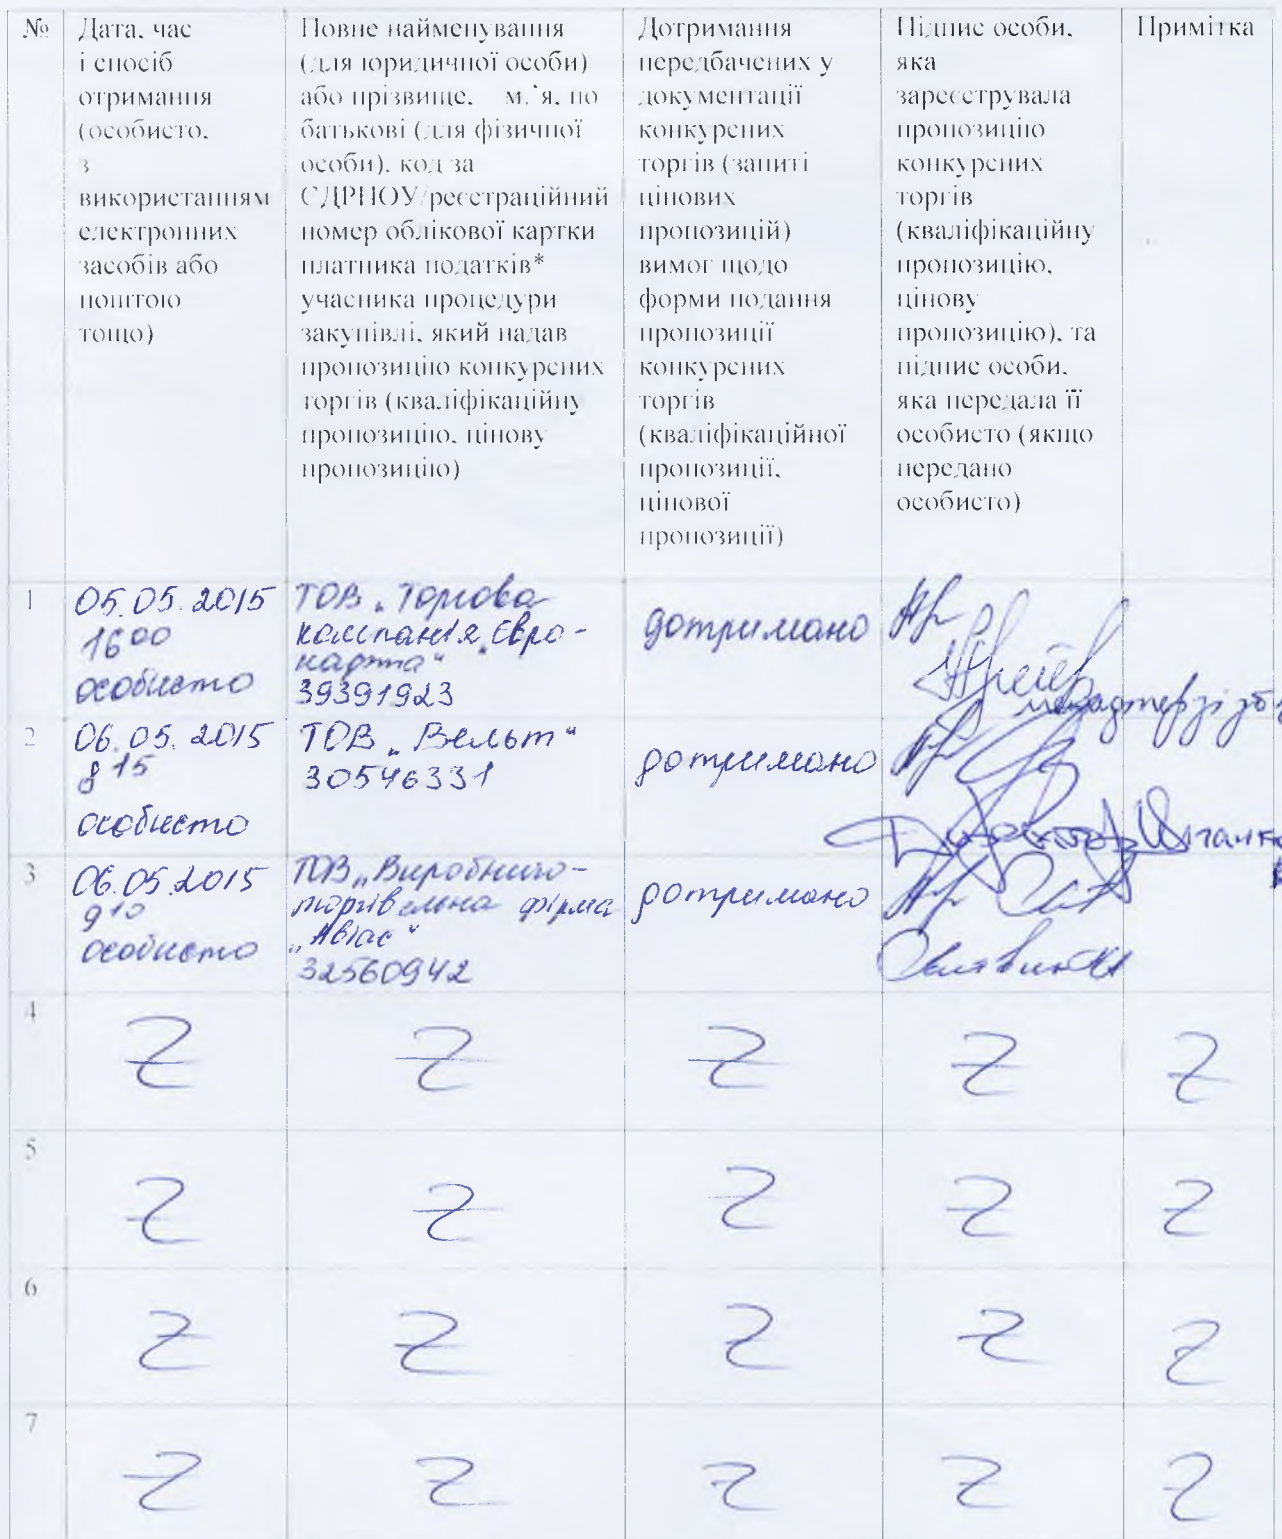 №
Дата, час
і спосіб
отримання
(особисто,
з
використанням
електронних
засобів або
поштою
тощо)
Повне найменування
(для юридичної особи)
або прізвище, м.'я, по
батькові (для фізичної
особи), код за
ЄДРПОУ/реєстраційний
номер облікової картки
платника податків*
учасника процедури
закупівлі, який надав
пропозицію конкурсних
торгів (кваліфікаційну
пропозицію, цінову
пропозицію)
Дотримання
передбачених у
документації
конкурсних
торгів (запиті
цінових
пропозицій)
вимог щодо
форми подання
пропозиції
конкурсних
торгів
(кваліфікаційної
пропозиції,
цінової
пропозиції)
Підпис особи,
яка
зареєструвала
пропозицію
конкурсних
торгів
(кваліфікаційну
пропозицію,
цінову
пропозицію), та
підпис особи,
яка передала її
особисто (якщо
передано
особисто)
Примітка
1
05.05.2015
16 00
особисто
ТОВ „Торгова
компанія „Євро-
карта"
39391923
дотримано
2
06.05.2015
8 15
особисто
ТОВ „Вельт"
30546331
дотримано
3
06.05.2015
9 10
особисто
ТОВ „Виробничо-
торгівельна фірма
„Авіас"
32560942
дотримано
4
Z Z Z Z Z
5
Z Z Z Z Z
6
Z Z Z Z Z
7
Z Z Z Z Z